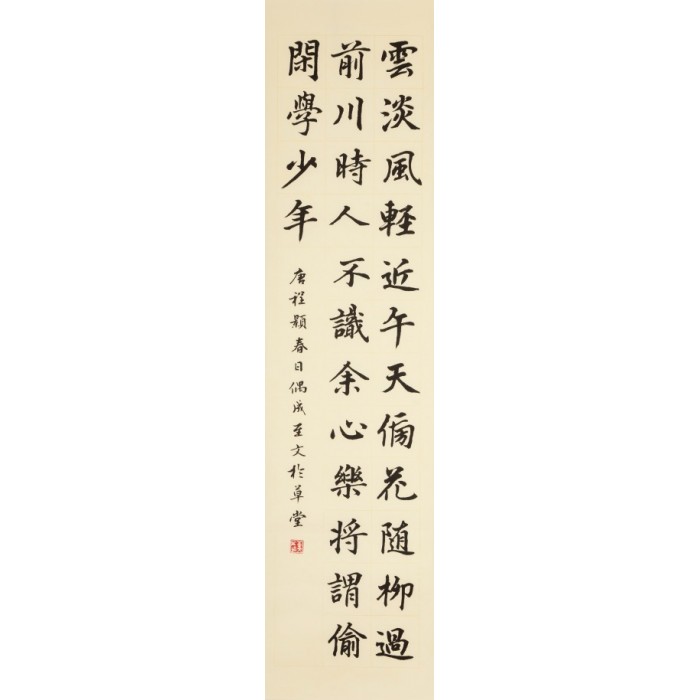 雲淡風軽近午天傍花随柳過
前川時人不識余心樂将謂偷
閑學少年
唐程顥春日偶成至文於草堂